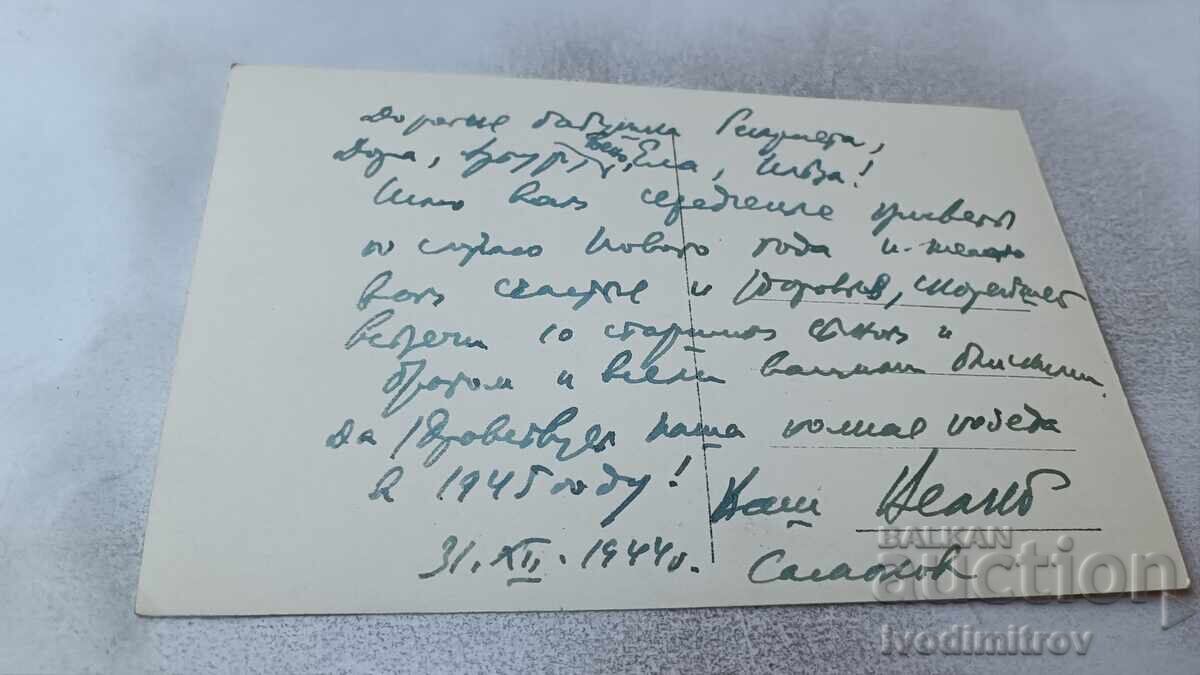 Дорогие бабушка
Дора, Ела, Илза!
Шлю вам сердечные приветы
по случаю Нового года и желаю
вам счастье и здоровья, скорейшей
встречи со старшим сыном и
братом и всеми вашими близкими.
Да здравствует наша полная победа
в 1945 году!
Ваш
31.XII.1944г.
BALKAN
auction
Ivodimitrov